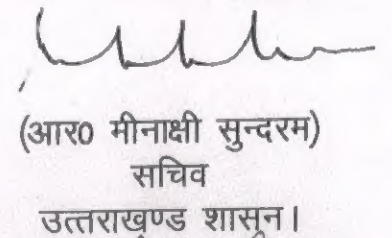 (आर0 मीनाक्षी सुन्दरम)
सचिव
उत्तराखण्ड शासन।